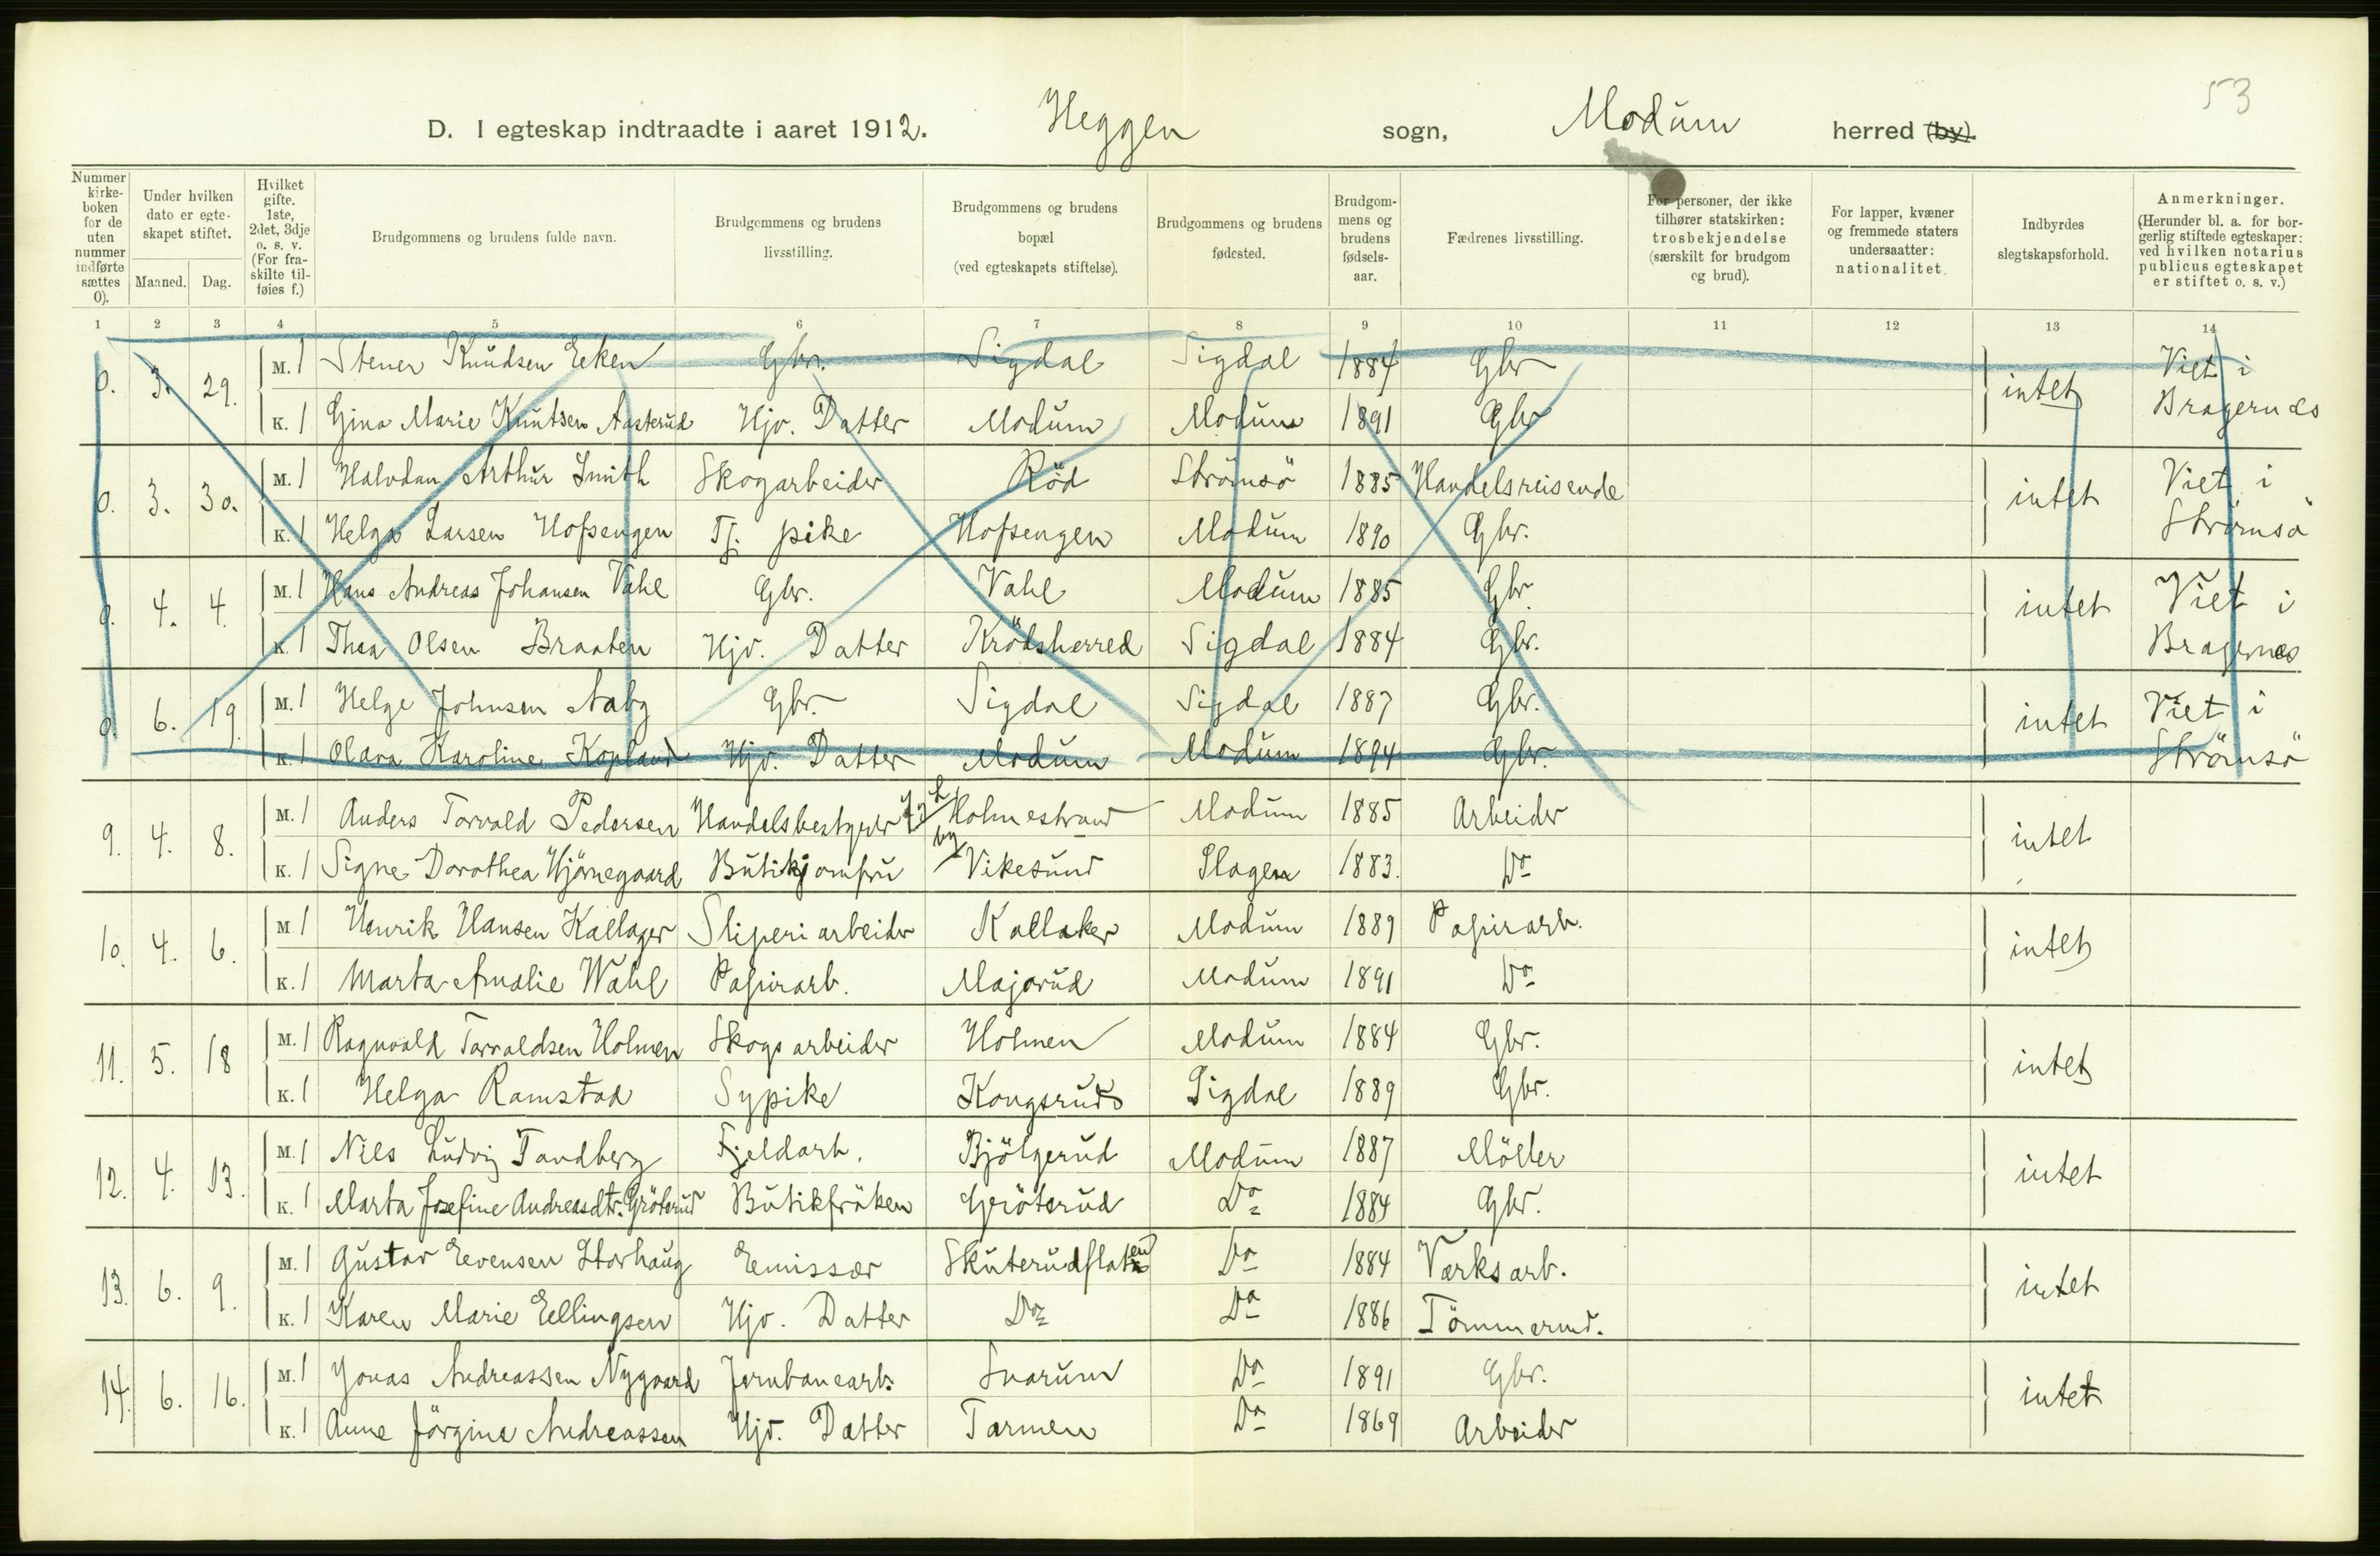 53
D. I egteskap indtraadte i aaret 1912. Heggen sogn, Modum herred (by).
Nummer kirke-boken for de uten nummer indførte sættes 0).
Under hvilken dato er egte-skapet stiftet.
Maaned. Dag.
Hvilket gifte. 1ste, 2det, 3dje o. s. v. (For fra-skilte til-føies f.)
Brudgommens og brudens fulde navn.
Brudgommens og brudens livsstilling.
Brudgommens og brudens bopæl (ved egteskapets stiftelse).
Brudgommens og brudens fødested.
Brudgom-mens og brudens fødsels-aar.
Fædrenes livsstilling.
For personer, der ikke tilhører statskirken: trosbekjendelse (særskilt for brudgom og brud).
For lapper, kvæner og fremmede staters undersaatter: nationalitet.
Indbyrdes slegtskapsforhold.
Anmerkninger. (Herunder bl. a. for bor-gerlig stiftede egteskaper: ved hvilken notarius publicus egteskapet er stiftet o. s. v.)
1 2 3 4 5 6 7 8 9 10 11 12 13 14
0. 3. 29. M. 1 Stener Knudsen Eeken Gbr. Sigdal Sigdal 1884 Gbr intet Viet i
K. 1 Gina Marie Knutsen Aasterud Hjv. Datter Modum Modum 1891 Gbr Bragernes
0. 3. 30. M. 1 Halvdan Arthur Smith Skogarbeider Röd Strömsö 1885 Handelsreisende intet Viet i
K. 1 Helga Larsen Hofsengen Tj. pike Hofsengen Modum 1890 Gbr. Strömsö
0. 4. 4. M. 1 Hans Andreas Johansen Vahl Gbr. Vahl Modum 1885 Gbr. intet Viet i
K. 1 Thea Olsen Braaten Hjv. Datter Krödsherred Sigdal 1884 Gbr. Bragernes
0. 6. 19. M. 1 Helge Johnsen Aaby Gbr. Sigdal Sigdal 1887 Gbr. intet Viet i
K. 1 Olava Karoline Kopland Hjv. Datter Modum Modum 1894 Gbr. Strömsö
9. 4. 8. M. 1 Anders Torvald Pedersen Handelsbestyrer Holmestrand Modum 1885 Arbeider intet
K. 1 Signe Dorothea Hjörnegaard Butikjomfru Vikesund Slagen 1883. Do
10. 4. 6. M 1 Henrik Hansen Kallager Sliperiarbeider Kallaker Modum 1889 Papirarb. intet
K. 1 Marta Amalie Wahl Papirarb. Majorud Modum 1891 Do
11. 5. 18 M. 1 Ragnvald Torvaldsen Holmen Skogsarbeider Holmen Modum 1884 Gbr. intet
K. 1 Helga Ramstad Sypike Kongsrud Sigdal 1889 Gbr.
12. 4. 13. M. 1 Nils Ludvig Tandberg Fjeldarb. Bjölgerud Modum 1887 Möller intet
K. 1 Marta Josefine Andreasdtr. Gröterud Butikfröken Gröterud Do 1884 Gbr.
13. 6. 9. M. 1 Gustav Evensen Storhaug Emissær Skuterudflaten Do 1884 Værksarb. intet
K. 1 Karen Marie Ellingsen Hjv. Datter Do Do 1886 Tömmermd.
14. 6. 16. M. 1 Jonas Andreassen Nygaard Jernbanearb. Snarum Do 1891 Gbr. intet
K. 1 Anne Jörgine Andreassen Hjv. Datter Tarmen Do 1869 Arbeider